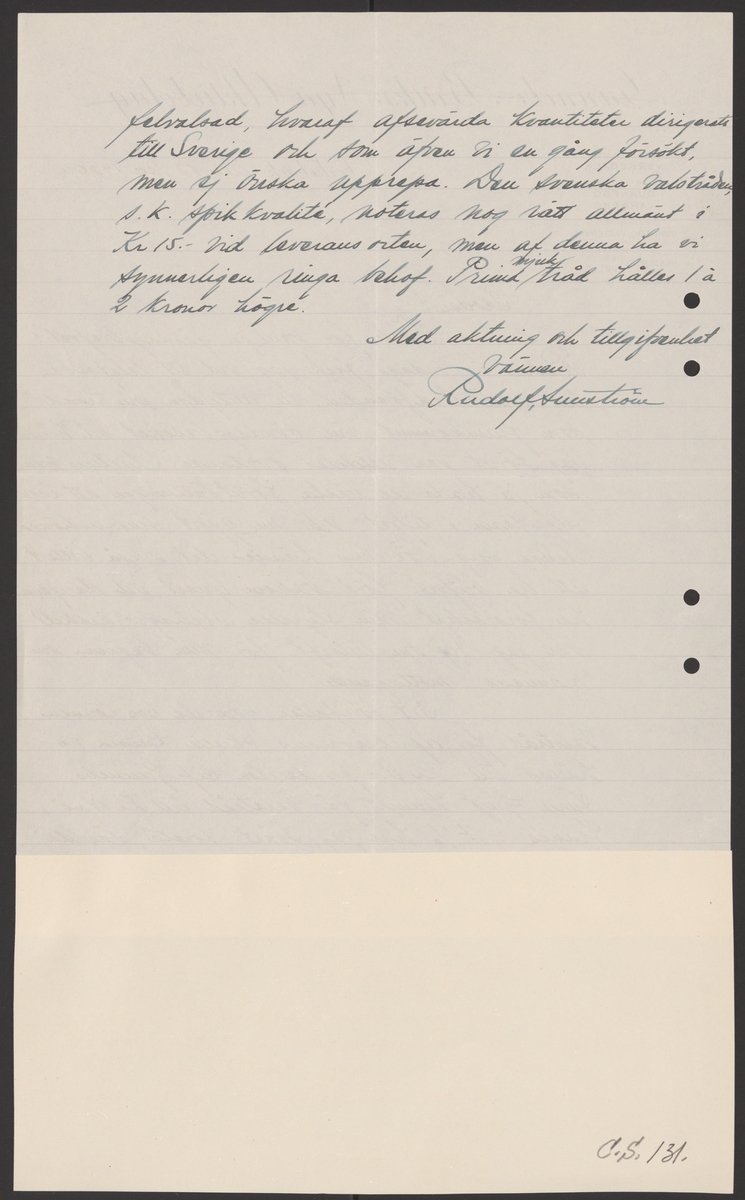 felvalsad, hvaraf afsevärda kvantiteter dirigerats
till Sverige och som äfven vi en gång försökt,
men ej önska upprepa. Den svenska valstråden,
s.k. spik kvalité, noteras nog rätt allmänt i
Kr 15.- vid leveransorten, men af denna ha vi
synnerligen ringa behof. Prima mjuk tråd hålles 1 à
2 kronor högre.
Med aktning och tillgifvenhet
vännen
Rudolf
C.S. 131.